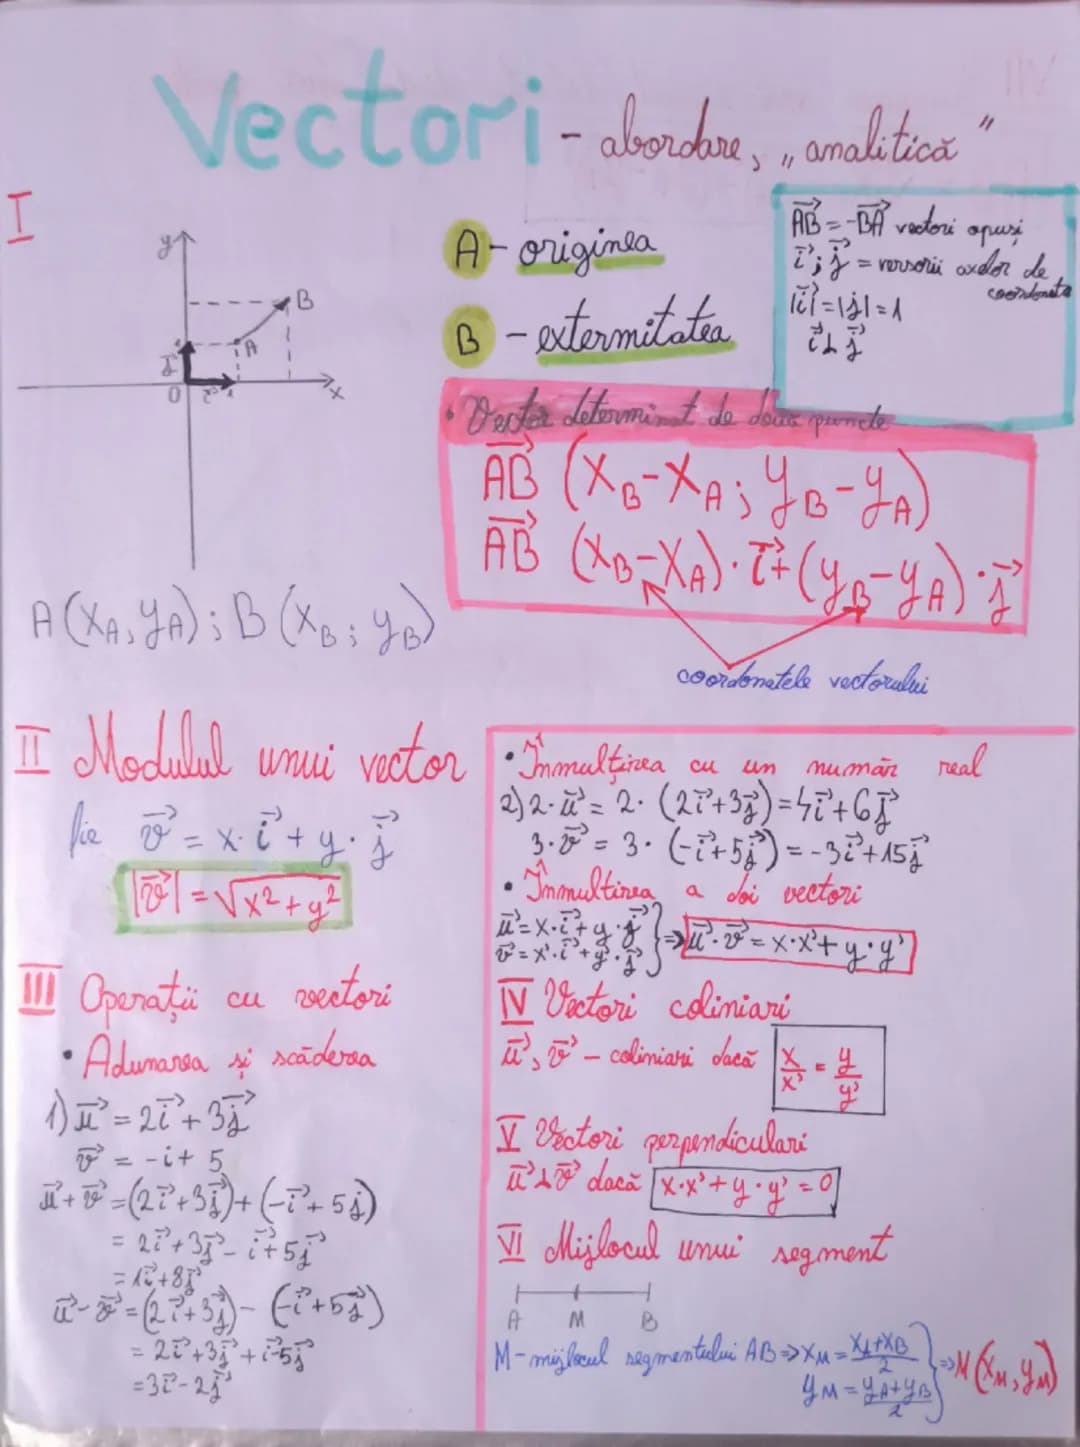 Vectori - abordare, „analitică"
I
y
B
A
j⃗
O i⃗ 1 x
A(x_A, y_A); B(x_B; y_B)
A - originea
B - extermitatea
A⃗B⃗ = -B⃗A⃗ vectori opuși
i⃗; j⃗ = versorii axelor de
coordonate
|i⃗| = |j⃗| = 1
i⃗ ⊥ j⃗
• Vector determinat de două puncte
A⃗B⃗ (x_B - x_A; y_B - y_A)
A⃗B⃗ (x_B - x_A)·i⃗ + (y_B - y_A)·j⃗
coordonatele vectorului
II Modulul unui vector
fie v⃗ = x·i⃗ + y·j⃗
|v⃗| = √(x² + y²)
III Operații cu vectori
• Adunarea și scăderea
1) u⃗ = 2i⃗ + 3j⃗
v⃗ = -i + 5
u⃗ + v⃗ = (2i⃗ + 3j⃗) + (-i⃗ + 5j)
= 2i⃗ + 3j⃗ - i⃗ + 5j⃗
= 1i⃗ + 8j⃗
u⃗ - v⃗ = (2i⃗ + 3j⃗) - (-i⃗ + 5j⃗)
= 2i⃗ + 3j⃗ + i⃗ - 5j⃗
= 3i⃗ - 2j⃗
• Înmulținea cu un număr real
2) 2·u⃗ = 2·(2i⃗ + 3j⃗) = 4i⃗ + 6j⃗
3·v⃗ = 3·(-i⃗ + 5j⃗) = -3i⃗ + 15j⃗
• Înmultirea a doi vectori
u⃗ = x·i⃗ + y·j⃗
v⃗ = x'·i⃗ + y'·j⃗ } ⇒ u⃗·v⃗ = x·x' + y·y'
IV Vectori coliniari
u⃗, v⃗ - coliniari dacă x/x' = y/y'
V Vectori perpendiculari
u⃗ ⊥ v⃗ dacă x·x' + y·y' = 0
VI Mijlocul unui segment
A M B
M - mijlocul segmentului AB ⇒ x_M = (x_A + x_B)/2
y_M = (y_A + y_B)/2 } ⇒ M(x_M, y_M)